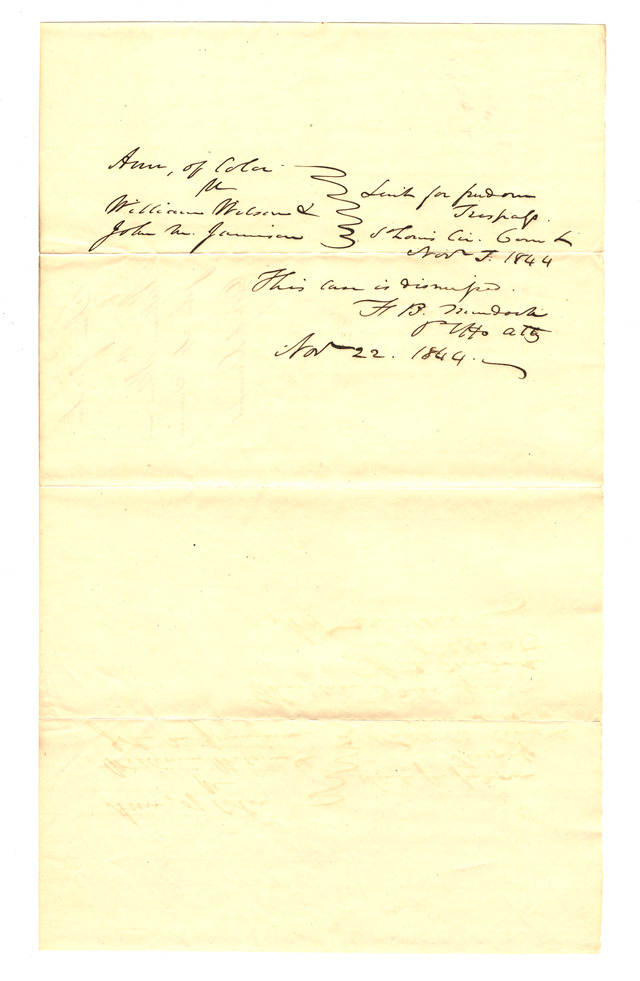 Ann, of Color
vs
William Wilson &
John M. Jamison
Suit for freedom
Trespass.
St Louis Cir. Court
Nov T. 1844
This case is dismissed.
F B. Murdoch
Plffs atty
Nov 22. 1844.